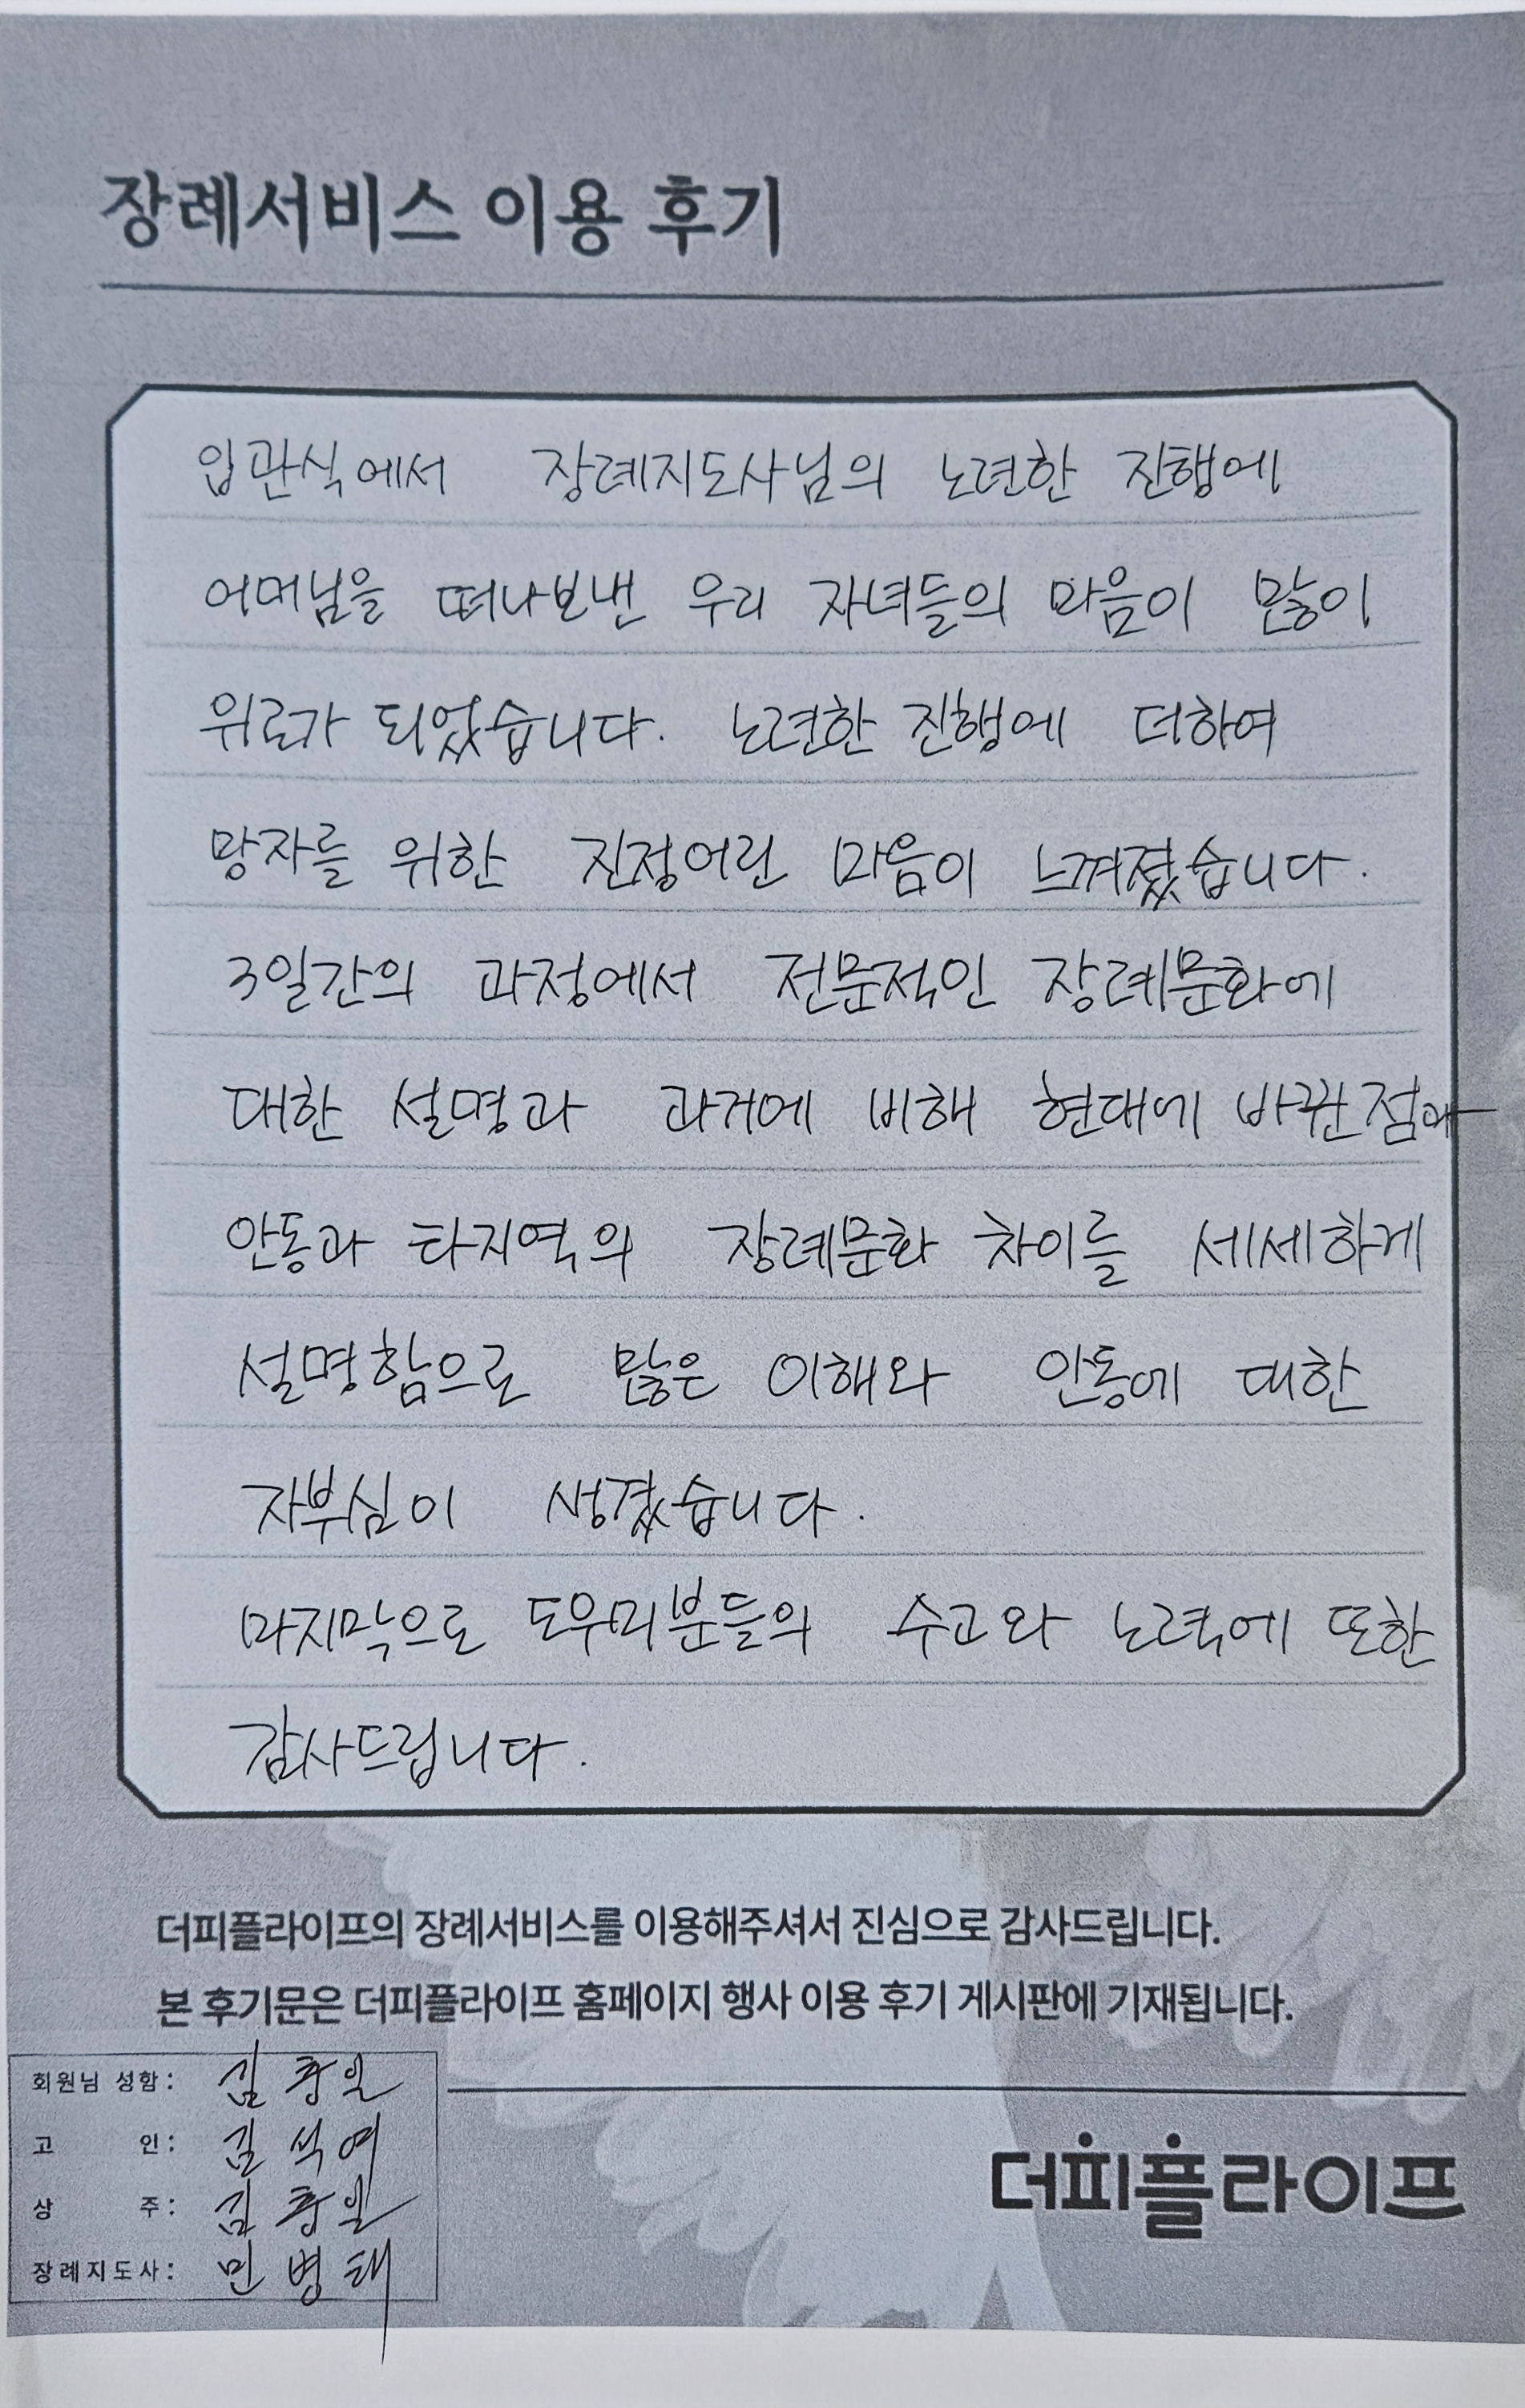 장례서비스 이용 후기
입관식에서 장례지도사님의 노련한 진행에
어머님을 떠나보낸 우리 자녀들의 마음이 많이
위로가 되었습니다. 노련한 진행에 더하여
망자를 위한 진정어린 마음이 느껴졌습니다.
3일간의 과정에서 전문적인 장례문화에
대한 설명과 과거에 비해 현대에 바뀐점
안동과 타지역의 장례문화 차이를 세세하게
설명함으로 많은 이해와 안동에 대한
자부심이 생겼습니다.
마지막으로 도우미분들의 수고와 노력에 또한
감사드립니다.
더피플라이프의 장례서비스를 이용해주셔서 진심으로 감사드립니다.
본 후기문은 더피플라이프 홈페이지 행사 이용 후기 게시판에 기재됩니다.
회원님 성함: 김
고 인: 김석여
상 주: 김
장례지도사: 민병태
더피플라이프